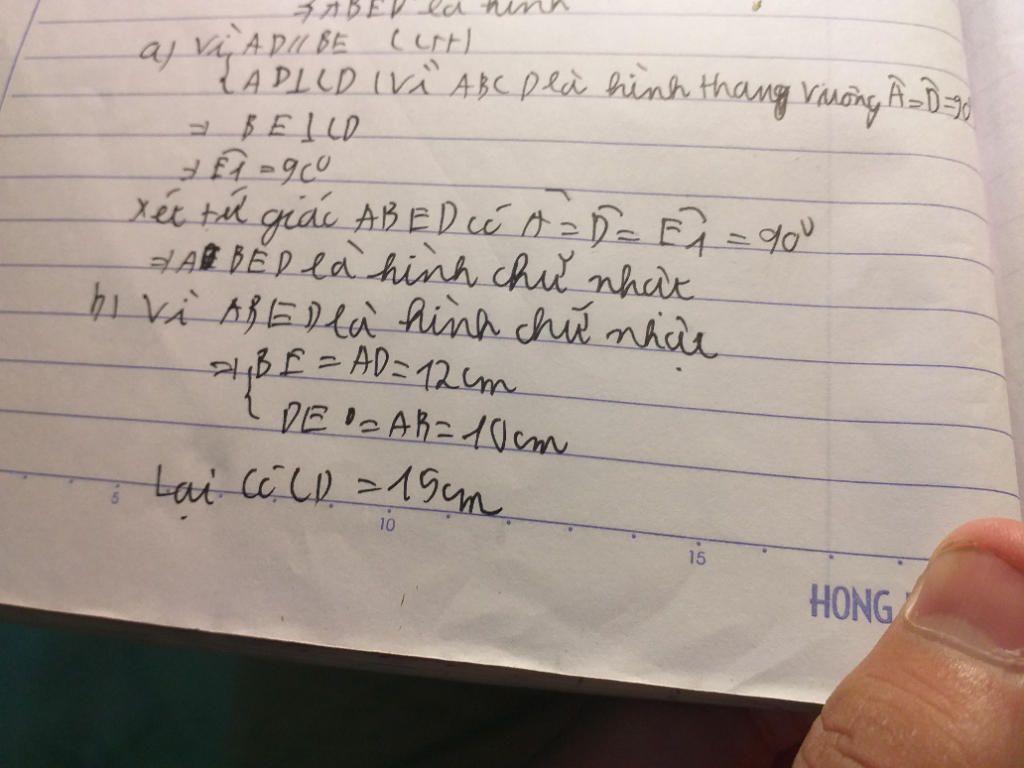 ⇒ ABED là hình
a) Vì AD // BE (cmt)
{ AD⊥CD (Vì ABCD là hình thang vuông Â=D̂=90
⇒ BE⊥CD
⇒ Ê1 = 90⁰
Xét tứ giác ABED có Â = D̂ = Ê1 = 90⁰
⇒ABED là hình chữ nhật
b) Vì ABED là hình chữ nhật
⇒ { BE = AD = 12cm
DE = AB = 10cm
Lại có CD = 15cm
5 10 15
HONG